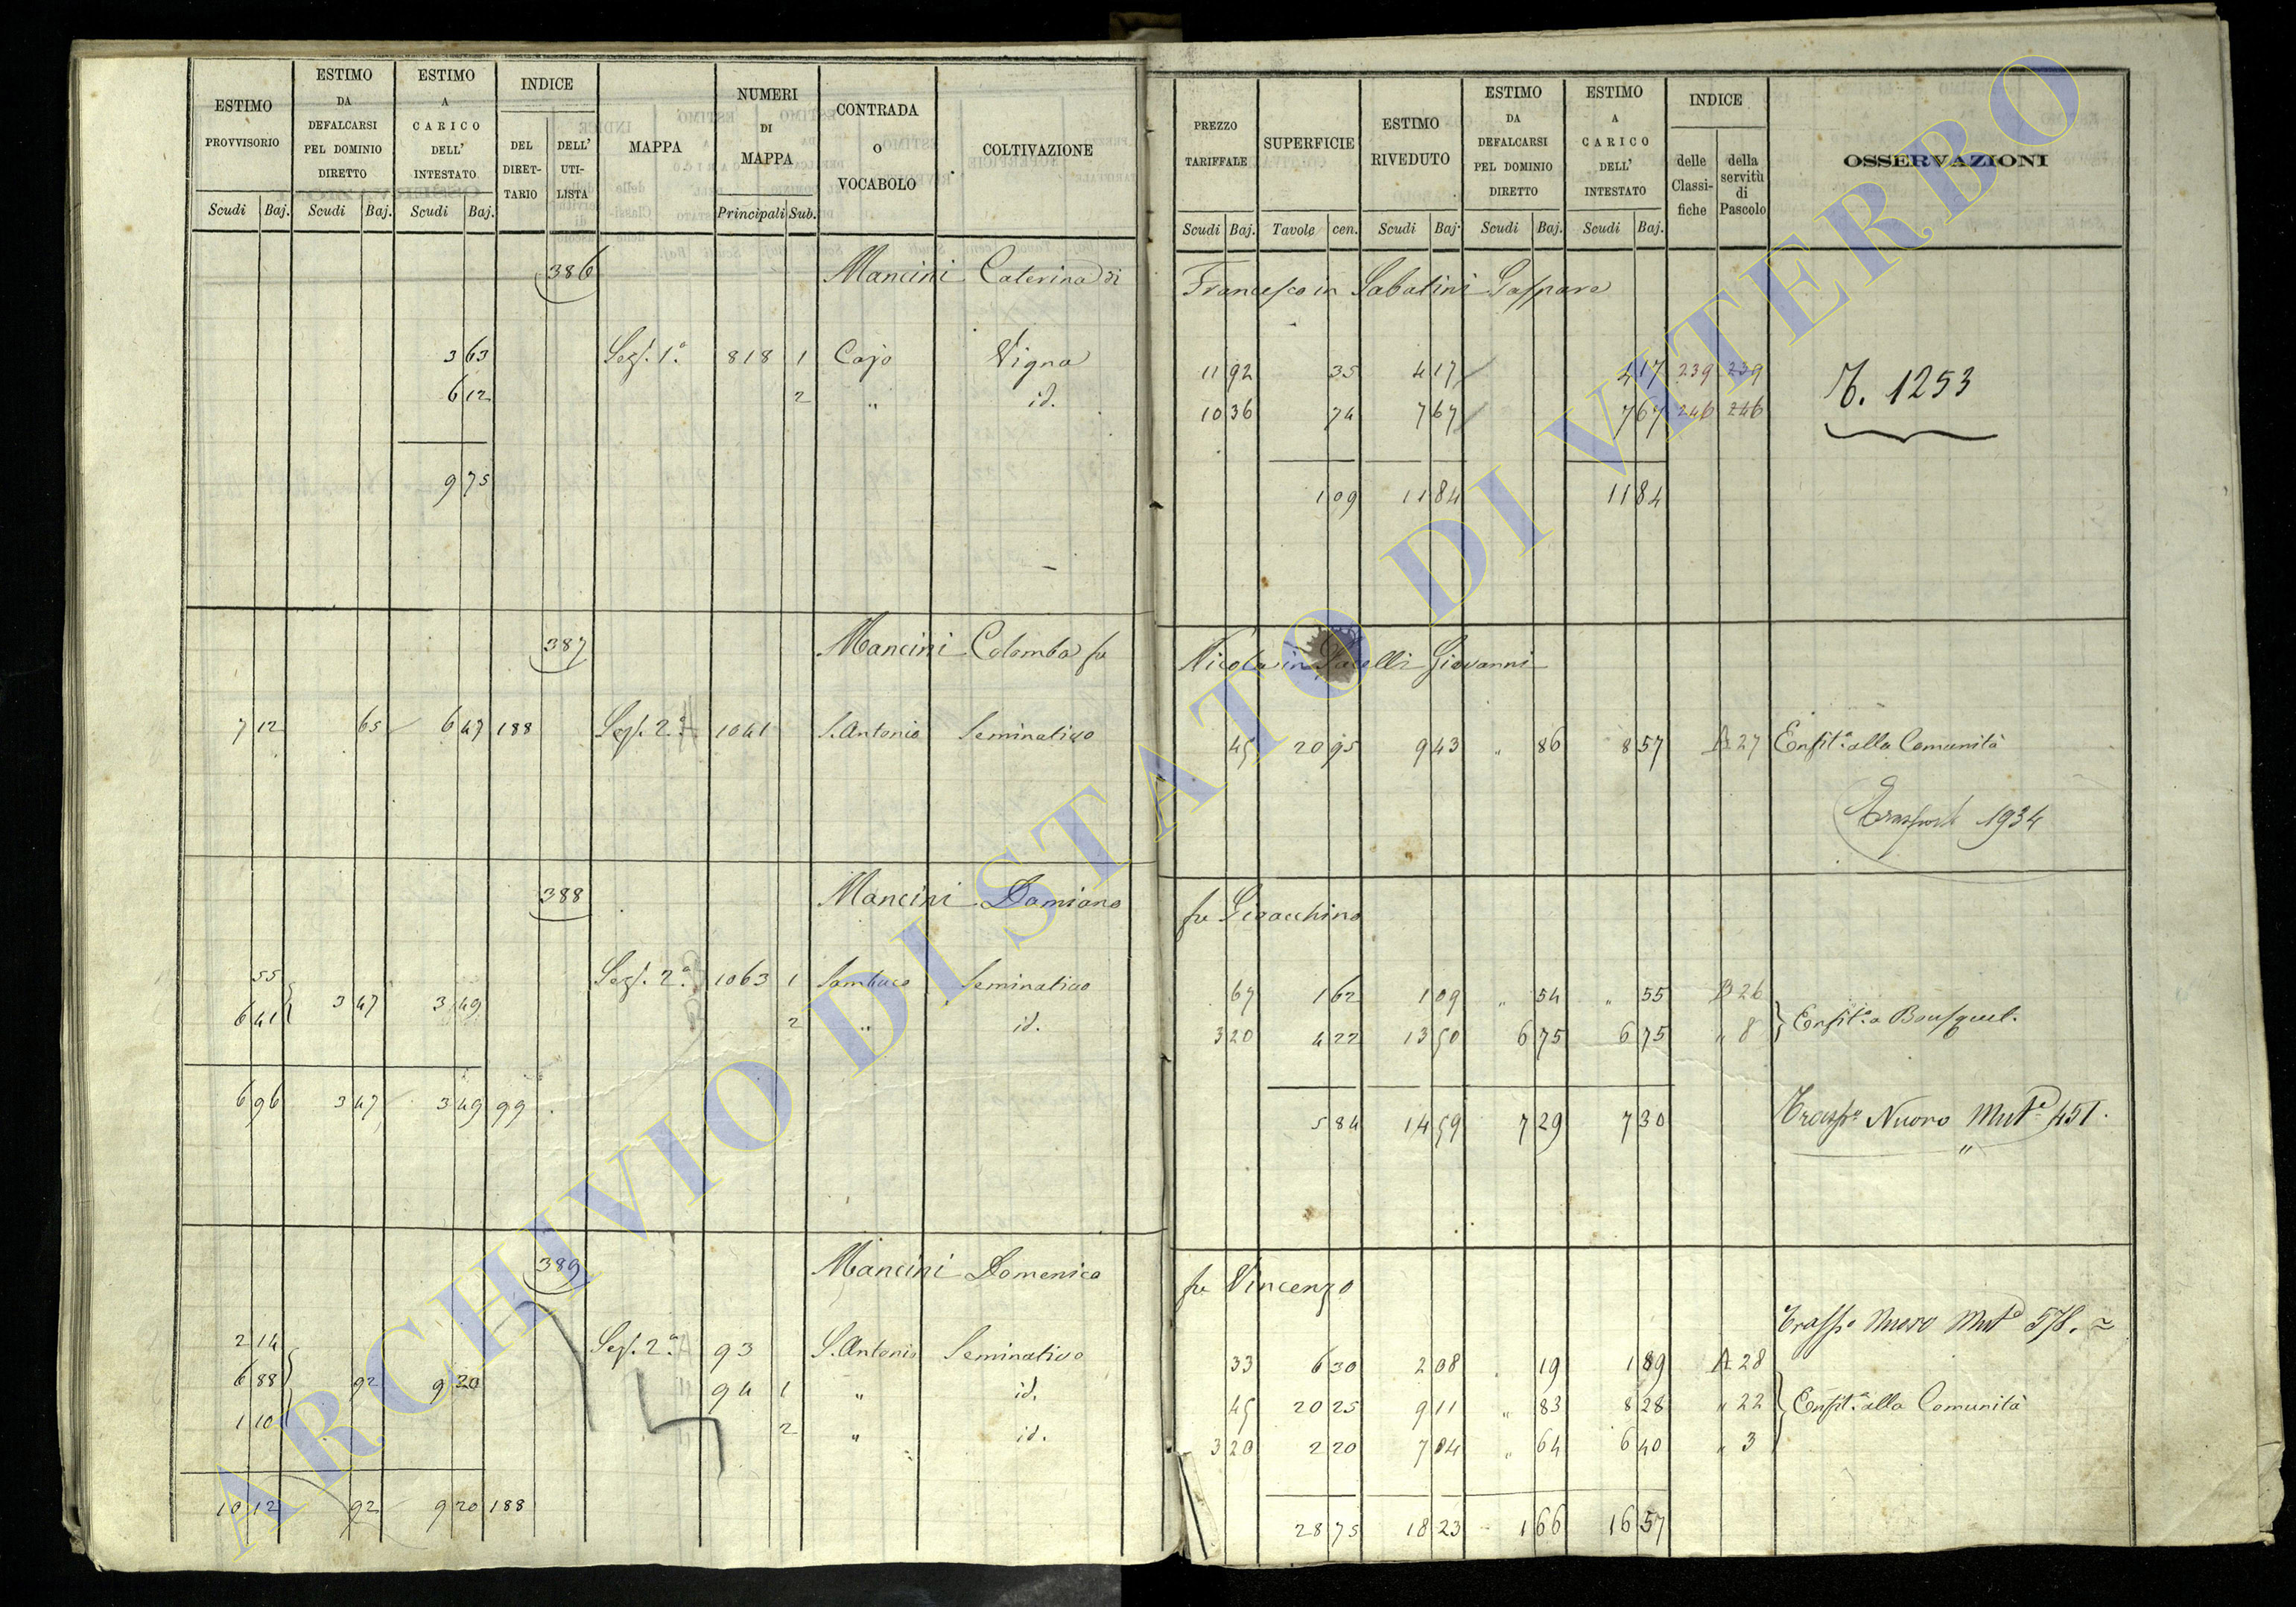 ESTIMO PROVVISORIO
ESTIMO DA DEFALCARSI PEL DOMINIO DIRETTO
ESTIMO A CARICO DELL' INTESTATO
INDICE
DEL DIRETTARIO
DELL' UTILISTA
MAPPA
NUMERI DI MAPPA
CONTRADA O VOCABOLO
COLTIVAZIONE
PREZZO TARIFFALE
SUPERFICIE
ESTIMO RIVEDUTO
ESTIMO DA DEFALCARSI PEL DOMINIO DIRETTO
ESTIMO A CARICO DELL' INTESTATO
INDICE
delle Classifiche
della servitù di Pascolo
OSSERVAZIONI
Scudi Baj. Scudi Baj. Scudi Baj. Principali Sub. Scudi Baj. Tavole cen. Scudi Baj. Scudi Baj. Scudi Baj.
386 Mancini Caterina di Francesco in Sabatini Gaspare
3 63 Sez. 1ª 818 1 Cajo Vigna 11 92 35 4 17 4 17 239 239
6 12 2 " id. 10 36 74 7 67 7 67 246 246
T. 1253
9 75 1 09 11 84 11 84
387 Mancini Colomba fu Nicola in Giovanni
7 12 65 6 47 188 Sez. 2ª 1041 S. Antonio Seminativo 45 20 95 9 43 " 86 8 57 A 27 Enfit.ª alla Comunità
Trasport 1934
388 Mancini Damiano fu Gioacchino
55 3 47 3 49 Sez. 2ª 1063 1 Sambuco Seminativo 67 1 62 1 09 " 54 " 55 B 26 Enfit.ª a Bousquet.
6 41 2 " id. 3 20 4 22 13 50 6 75 6 75 " 8
6 96 3 47 3 49 99 5 84 14 59 7 29 7 30 Trasp.º Nuovo Mut.e 451.
389 Mancini Domenico fu Vincenzo
Trasp.º Nuovo Mut.e 578.
2 14 Sez. 2ª 93 S. Antonio Seminativo 33 6 30 2 08 19 1 89 A 28
6 88 92 9 20 94 1 " id. 45 20 25 9 11 " 83 8 28 " 22 Enfit.ª alla Comunità
1 10 2 " id. 3 20 2 20 7 04 " 64 6 40 " 3
10 12 92 9 20 188 28 75 18 23 1 66 16 57
ARCHIVIO DI STATO DI VITERBO